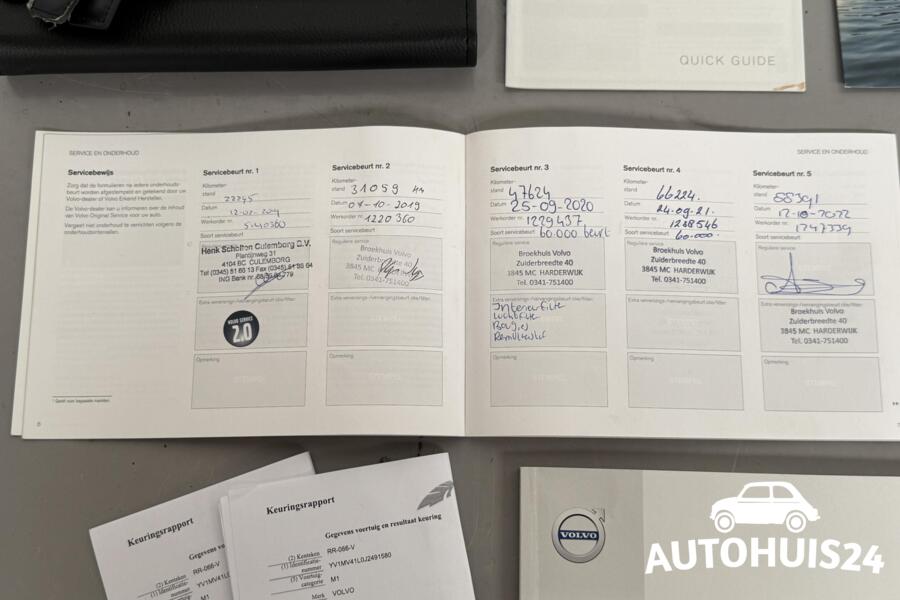 QUICK GUIDE
SERVICE EN ONDERHOUD
Servicebewijs
Zorg dat de formulieren na iedere onderhouds-
beurt worden afgestempeld en getekend door uw
Volvo-dealer of Volvo Erkend Hersteller.
De Volvo-dealer kan u informeren over de inhoud
van Volvo Original Service voor uw auto.
Vergeet niet onderhoud te verrichten volgens de
onderhoudsintervallen.
8
Servicebeurt nr. 1
Kilometer-
stand
Datum
Werkorder nr.
Soort servicebeurt
Henk Scholten Culemborg B.V.
Plantijnweg 31
4104 BC CULEMBORG
Extra verversings-/vervangingsbeurt olie/filter:
VOLVO SERVICE
2.0
Opmerking
Servicebeurt nr. 2
Kilometer-
stand 31059 km
Datum 07-10-2019
Werkorder nr. 1220360
Soort servicebeurt
Reguliere service
Broekhuis Volvo
Zuiderbreedte 40
3845 MC HARDERWIJK
Tel. 0341-751400
Extra verversings-/vervangingsbeurt olie/filter:
Opmerking
STEMPEL
SERVICE EN ONDERHOUD
Servicebeurt nr. 3
Kilometer-
stand 47624
Datum 25-09-2020
Werkorder nr. 1229437
Soort servicebeurt 60.000 beurt
Reguliere service
Broekhuis Volvo
Zuiderbreedte 40
3845 MC HARDERWIJK
Tel. 0341-751400
Extra verversings-/vervangingsbeurt olie/filter:
Interieurfilter
Luchtfilter
Bougies
Remvloeistof
Opmerking
STEMPEL
Servicebeurt nr. 4
Kilometer-
stand 66224.
Datum 24-09-21.
Werkorder nr. 1238546
Soort servicebeurt 60.000.
Reguliere service
Broekhuis Volvo
Zuiderbreedte 40
3845 MC HARDERWIJK
Tel. 0341-751400
Extra verversings-/vervangingsbeurt olie/filter:
Opmerking
STEMPEL
Servicebeurt nr. 5
Kilometer-
stand 88391
Datum 12-10-2022
Werkorder nr. 1247339
Soort servicebeurt
Reguliere service
Extra verversings-/vervangingsbeurt olie/filter:
Broekhuis Volvo
Zuiderbreedte 40
3845 MC HARDERWIJK
Tel. 0341-751400
Opmerking
STEMPEL
Keuringsrapport
Gegevens vo
(2) Kenteken RR-066-V
(1) Identificatie-
nummer YV1MV41L
(5) Voertuig-
categorie M1
Keuringsrapport
Gegevens voertuig en resultaat keuring
(2) Kenteken RR-066-V
(1) Identificatie-
nummer YV1MV41L0J2491580
(5) Voertuig-
categorie M1
Merk VOLVO
VOLVO
AUTOHUIS24